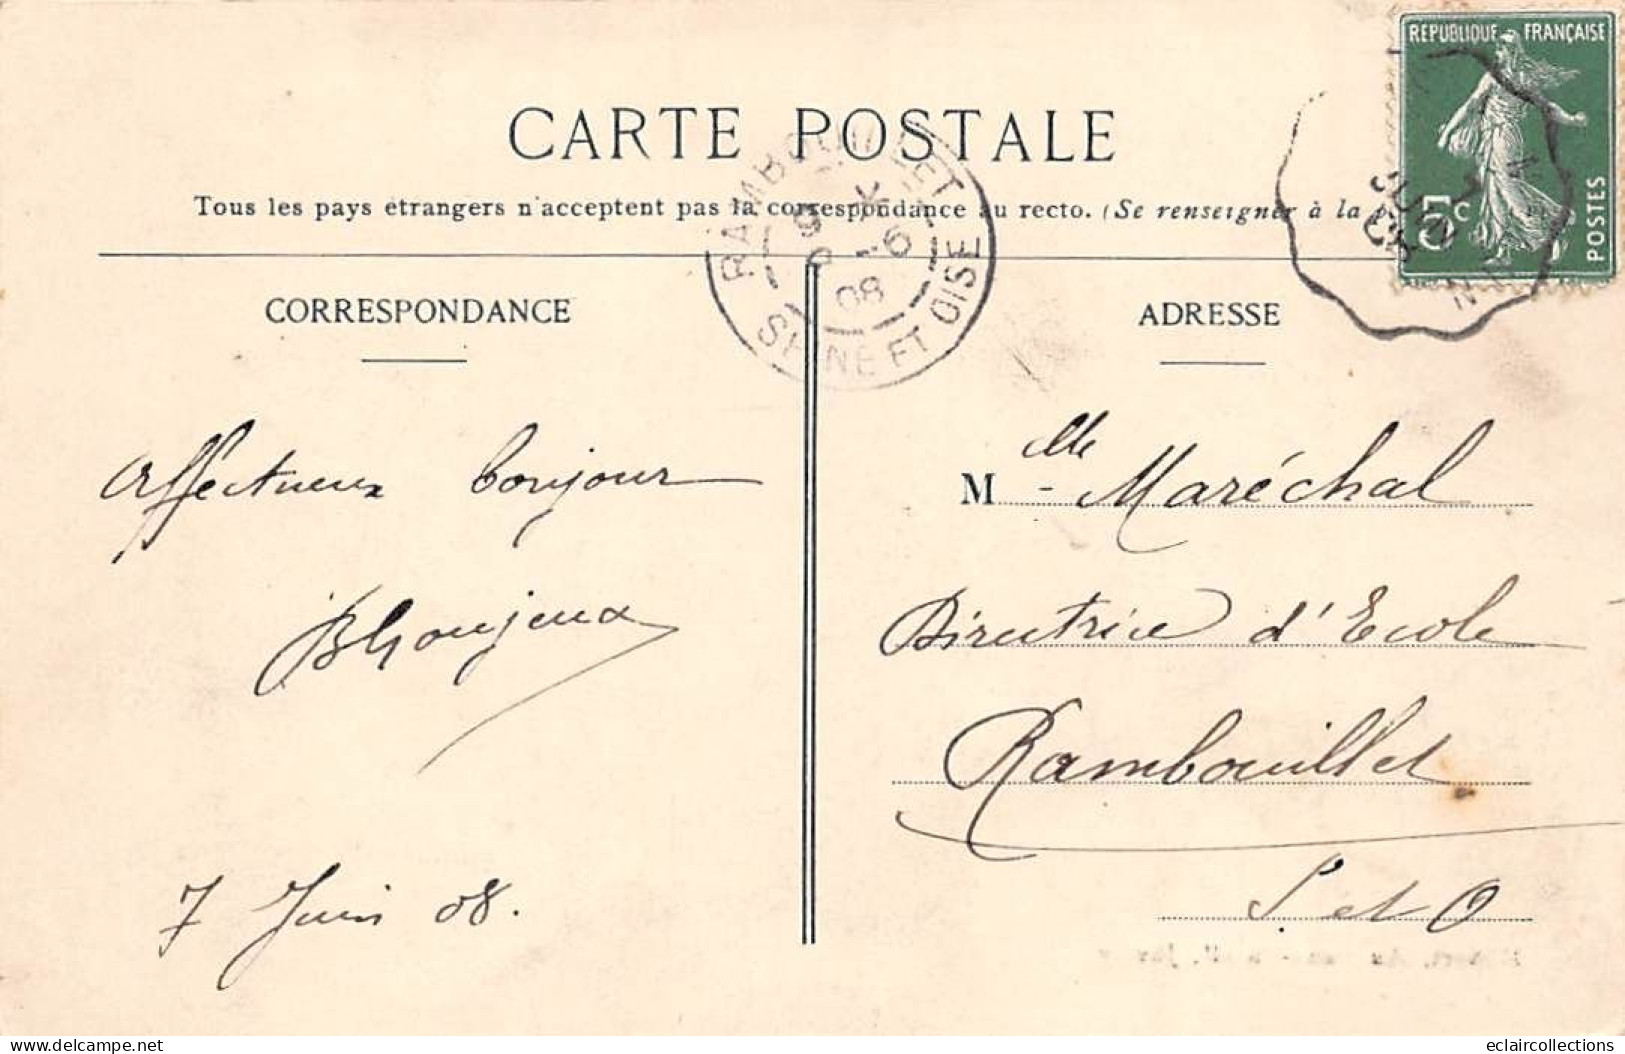 REPUBLIQUE FRANÇAISE
5c
POSTES
CARTE POSTALE
RAMBOUILLET
SEINE ET OISE
08
JUIN
08
Tous les pays étrangers n'acceptent pas la correspondance au recto. (Se renseigner à la
CORRESPONDANCE
ADRESSE
Affectueux bonjour
7 Juin 08.
Melle Maréchal
Directrice d'Ecole
Rambouillet
S. et O
delcampe.net
eclaircollections